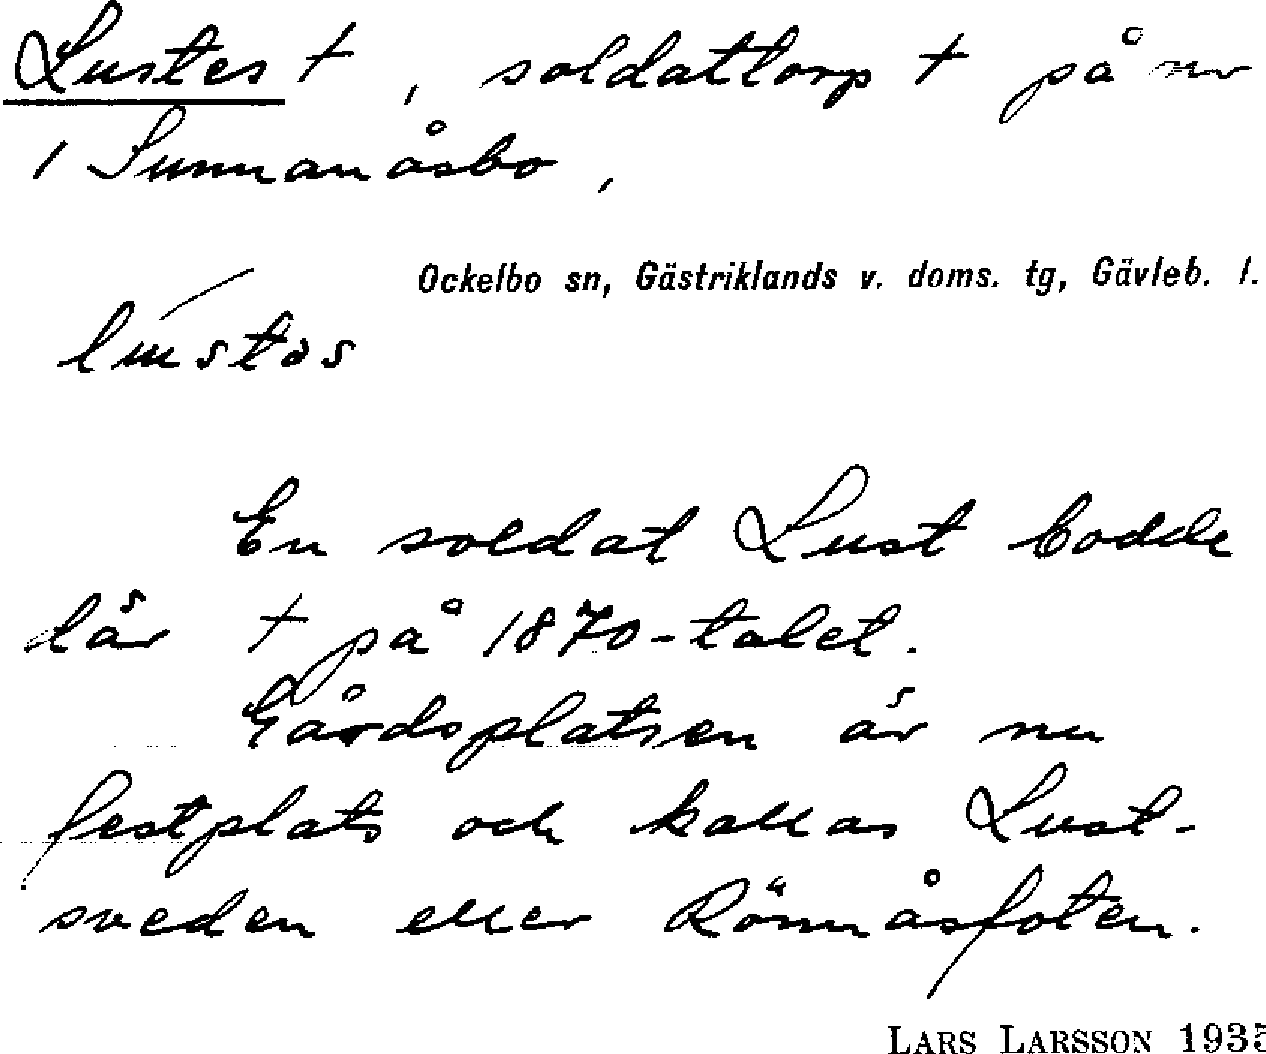 Lustes †, soldattorp † på nr
1 Sunnanåsbo,
Ockelbo sn, Gästriklands v. doms. tg, Gävleb. l.
En soldat Lust bodde
där † på 1870-talet.
Gårdsplatsen är nu
festplats och kallas Lust-
sveden eller Rönnåsfoten.
LARS LARSSON 1935